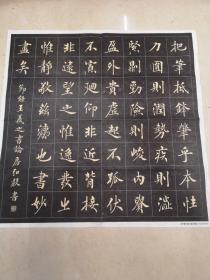 把筆抵鋒肇乎本性
力圓則潤勢疾則澀
緊則勁險則峻內
盈外貴虛起不孤伏
不寡迴仰非近背接
非遠望之惟逸發之
惟靜敬茲法也書妙
盡矣
節錄王羲之書論 書